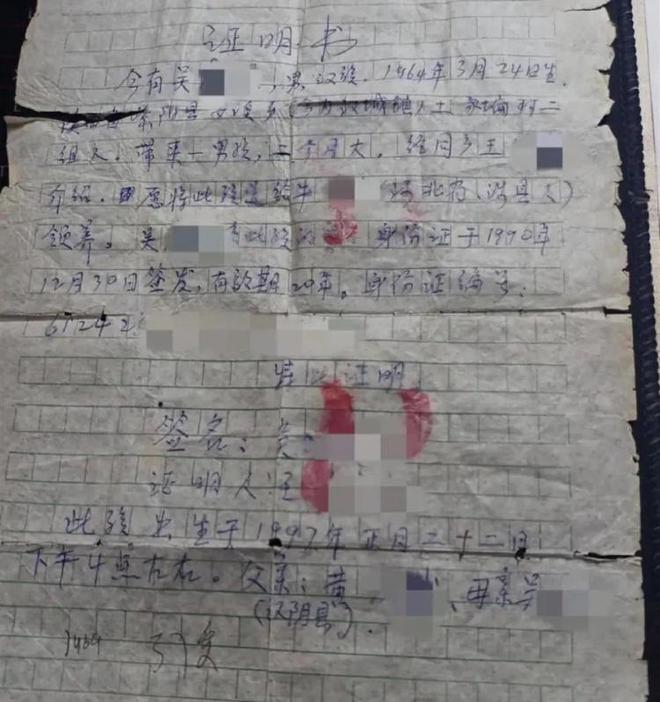 证明书
今有吴 ,男,汉族.1964年3月24日生.
组人.带来一男孩,二个月大,经同乡王
介绍.愿将此孩送给牛 河北省(涉县人)
领养。吴 身份证于1990年
12月30日签发,有效期20年。身份证编号:
61242
特此证明
签名:吴
证明人:王
此孩出生于1997年正月二十二日,
下午4点左右。父亲:黄 、母亲吴
(汉阴县).
1964